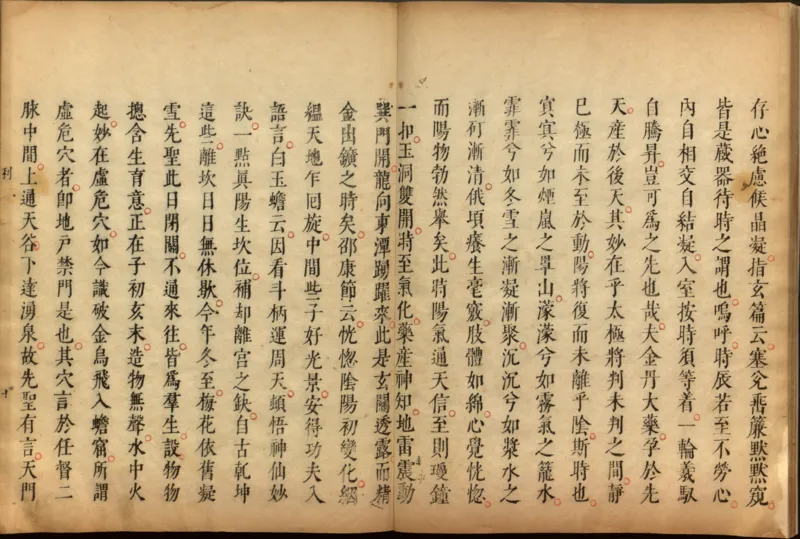 存心絶慮候晶凝指玄篇云塞兊垂簾默默窺
皆是蔵器待時之謂也嗚呼時辰若至不勞心
內自相交自結凝入室按時須等着一輪羲馭
自騰昇豈可爲之先也哉夫金丹大藥孕於先
天産於後天其妙在乎太極將判未判之間靜
已極而未至於動陽將復而未離乎陰斯時也
㝠㝠兮如煙嵐之罩山濛濛兮如霧氣之籠水
霏霏兮如冬雪之漸凝漸聚沉沉兮如漿水之
漸矴漸清俄頃癢生毫竅肢體如綿心覺恍惚
而陽物勃然舉矣此時陽氣通天信至則瓊鐘
一扣玉洞雙開時至氣化藥産神知地雷震動
巽門開龍向東潭踴躍來此是玄關透露而精
金出鑛之時矣邵康節云恍惚陰陽初變化絪
縕天地乍囘旋中間些子好光景安得功夫入
語言白玉蟾云因看斗柄運周天頓悟神仙妙
訣一點眞陽生坎位補却離宮之缺自古乹坤
這些離坎日日無休歇今年冬至梅花依舊凝
雪先聖此日閉關不通來往皆爲羣生設物物
摠含生育意正在子初亥末造物無聲水中火
起妙在虛危穴如今識破金烏飛入蟾窟所謂
虛危穴者卽地戶禁門是也其穴言於任督二
脉中間上通天谷下達湧泉故先聖有言天門